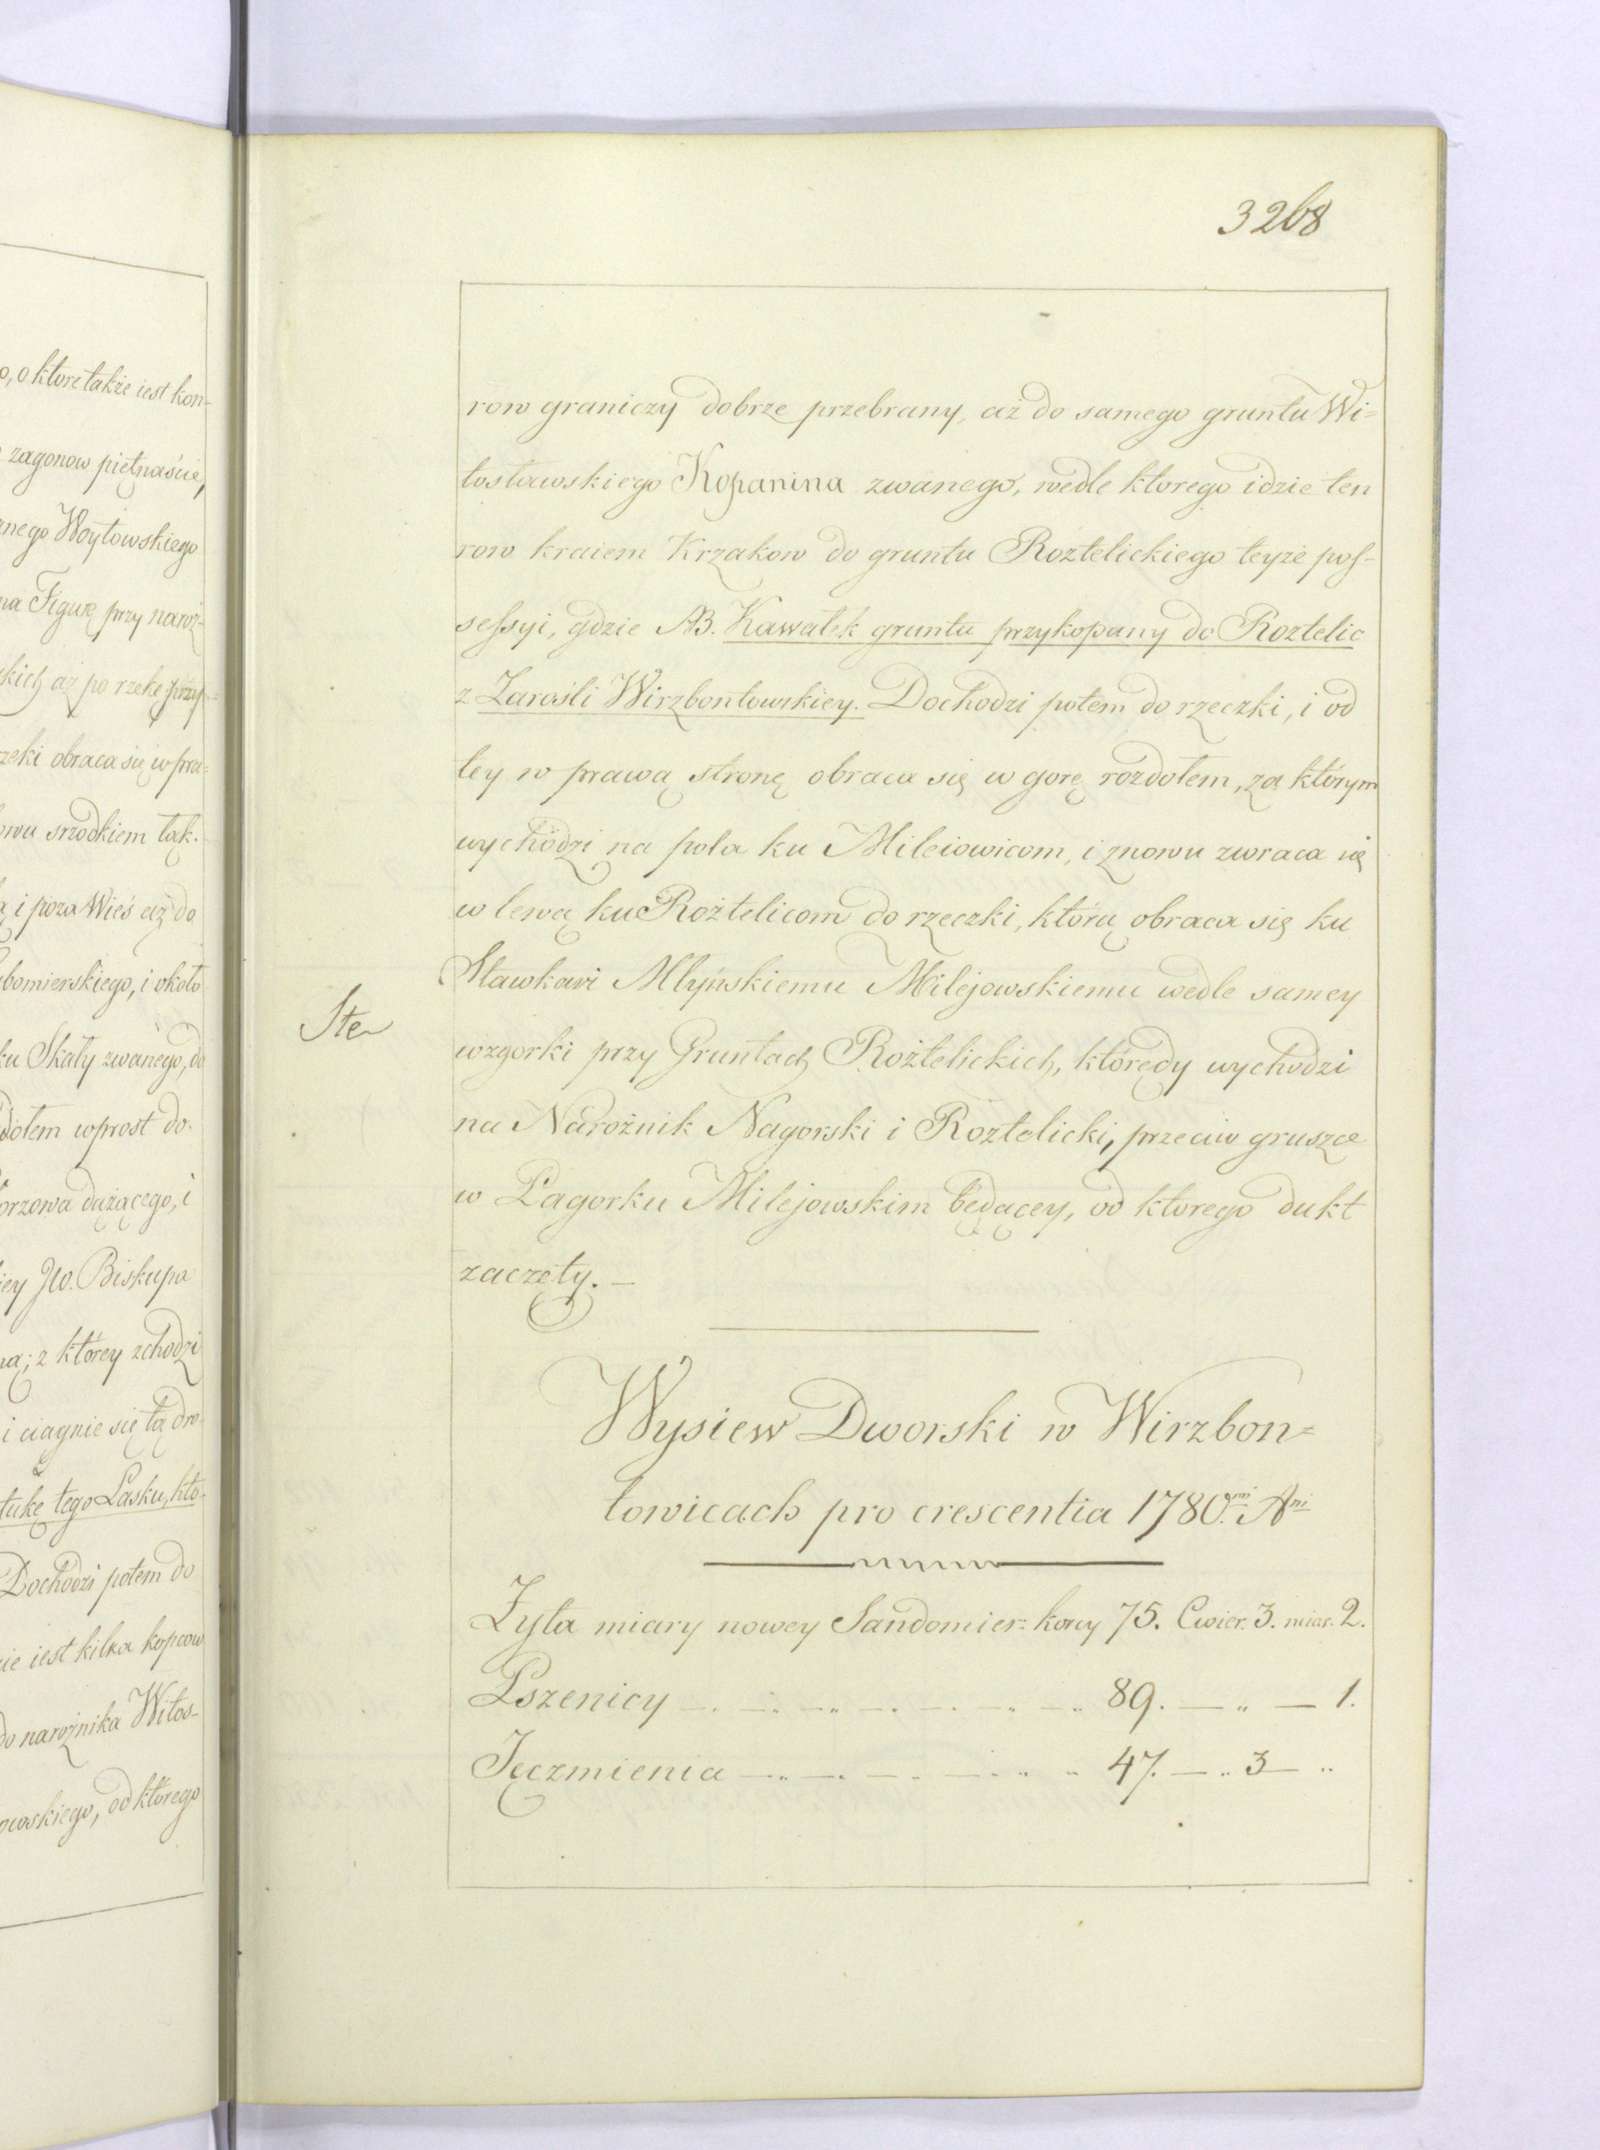 o, o ktore także iest kon-
zagonow piętnaście,
znego Woytowskiego
na Figurę przy naroż-
skich aż po rzekę przy-
rzeki obraca się w pra-
owu srzodkiem łąk.
ą i poza Wieś aż do
bomierskiego, i około
ku Skały zwanego, do
dołem wprost do-
orzowa dążącego, i
iey Jw. Biskupa
na; z ktorey zchodzi
i ciągnie się tą dro-
tukę tego Lasku, kto-
Dochodzi potem do
ie iest kilka kopcow
do narożnika Witos-
owskiego, od ktorego
3268
row graniczy dobrze przebrany, aż do samego gruntu Wi-
tosławskiego Kopanina zwanego, wedle ktorego idzie ten
row kraiem Krzakow do gruntu Roztelickiego teyże pos-
sessyi, gdzie NB. Kawałek gruntu przykopany do Roztelic
z Zarośli Wirzbontowskiey. Dochodzi potem do rzeczki, i od
tey w prawą stronę obraca się w gorę rozdołem, za którym
wychodzi na pola ku Mileiowicom, i znowu zwraca się
w lewą ku Rożtelicom do rzeczki, którą obraca się ku
Stawkowi Młyńskiemu Milejowskiemu wedle samey
Ste
wzgorki przy Gruntach Rożtelickich, którędy wychodzi
na Narożnik Nagorski i Roztelicki, przeciw gruszce
w Pagorku Milejowskim będącey, od ktorego dukt
zaczęty. —
Wysiew Dworski w Wirzbon=
towicach pro crescentia 1780mi Ani
Żyta miary nowey Sandomier= korcy 75. Cwier. 3. miar. 2.
Pszenicy — 89. — " — 1.
Jęczmienia — 47. — " 3 — "